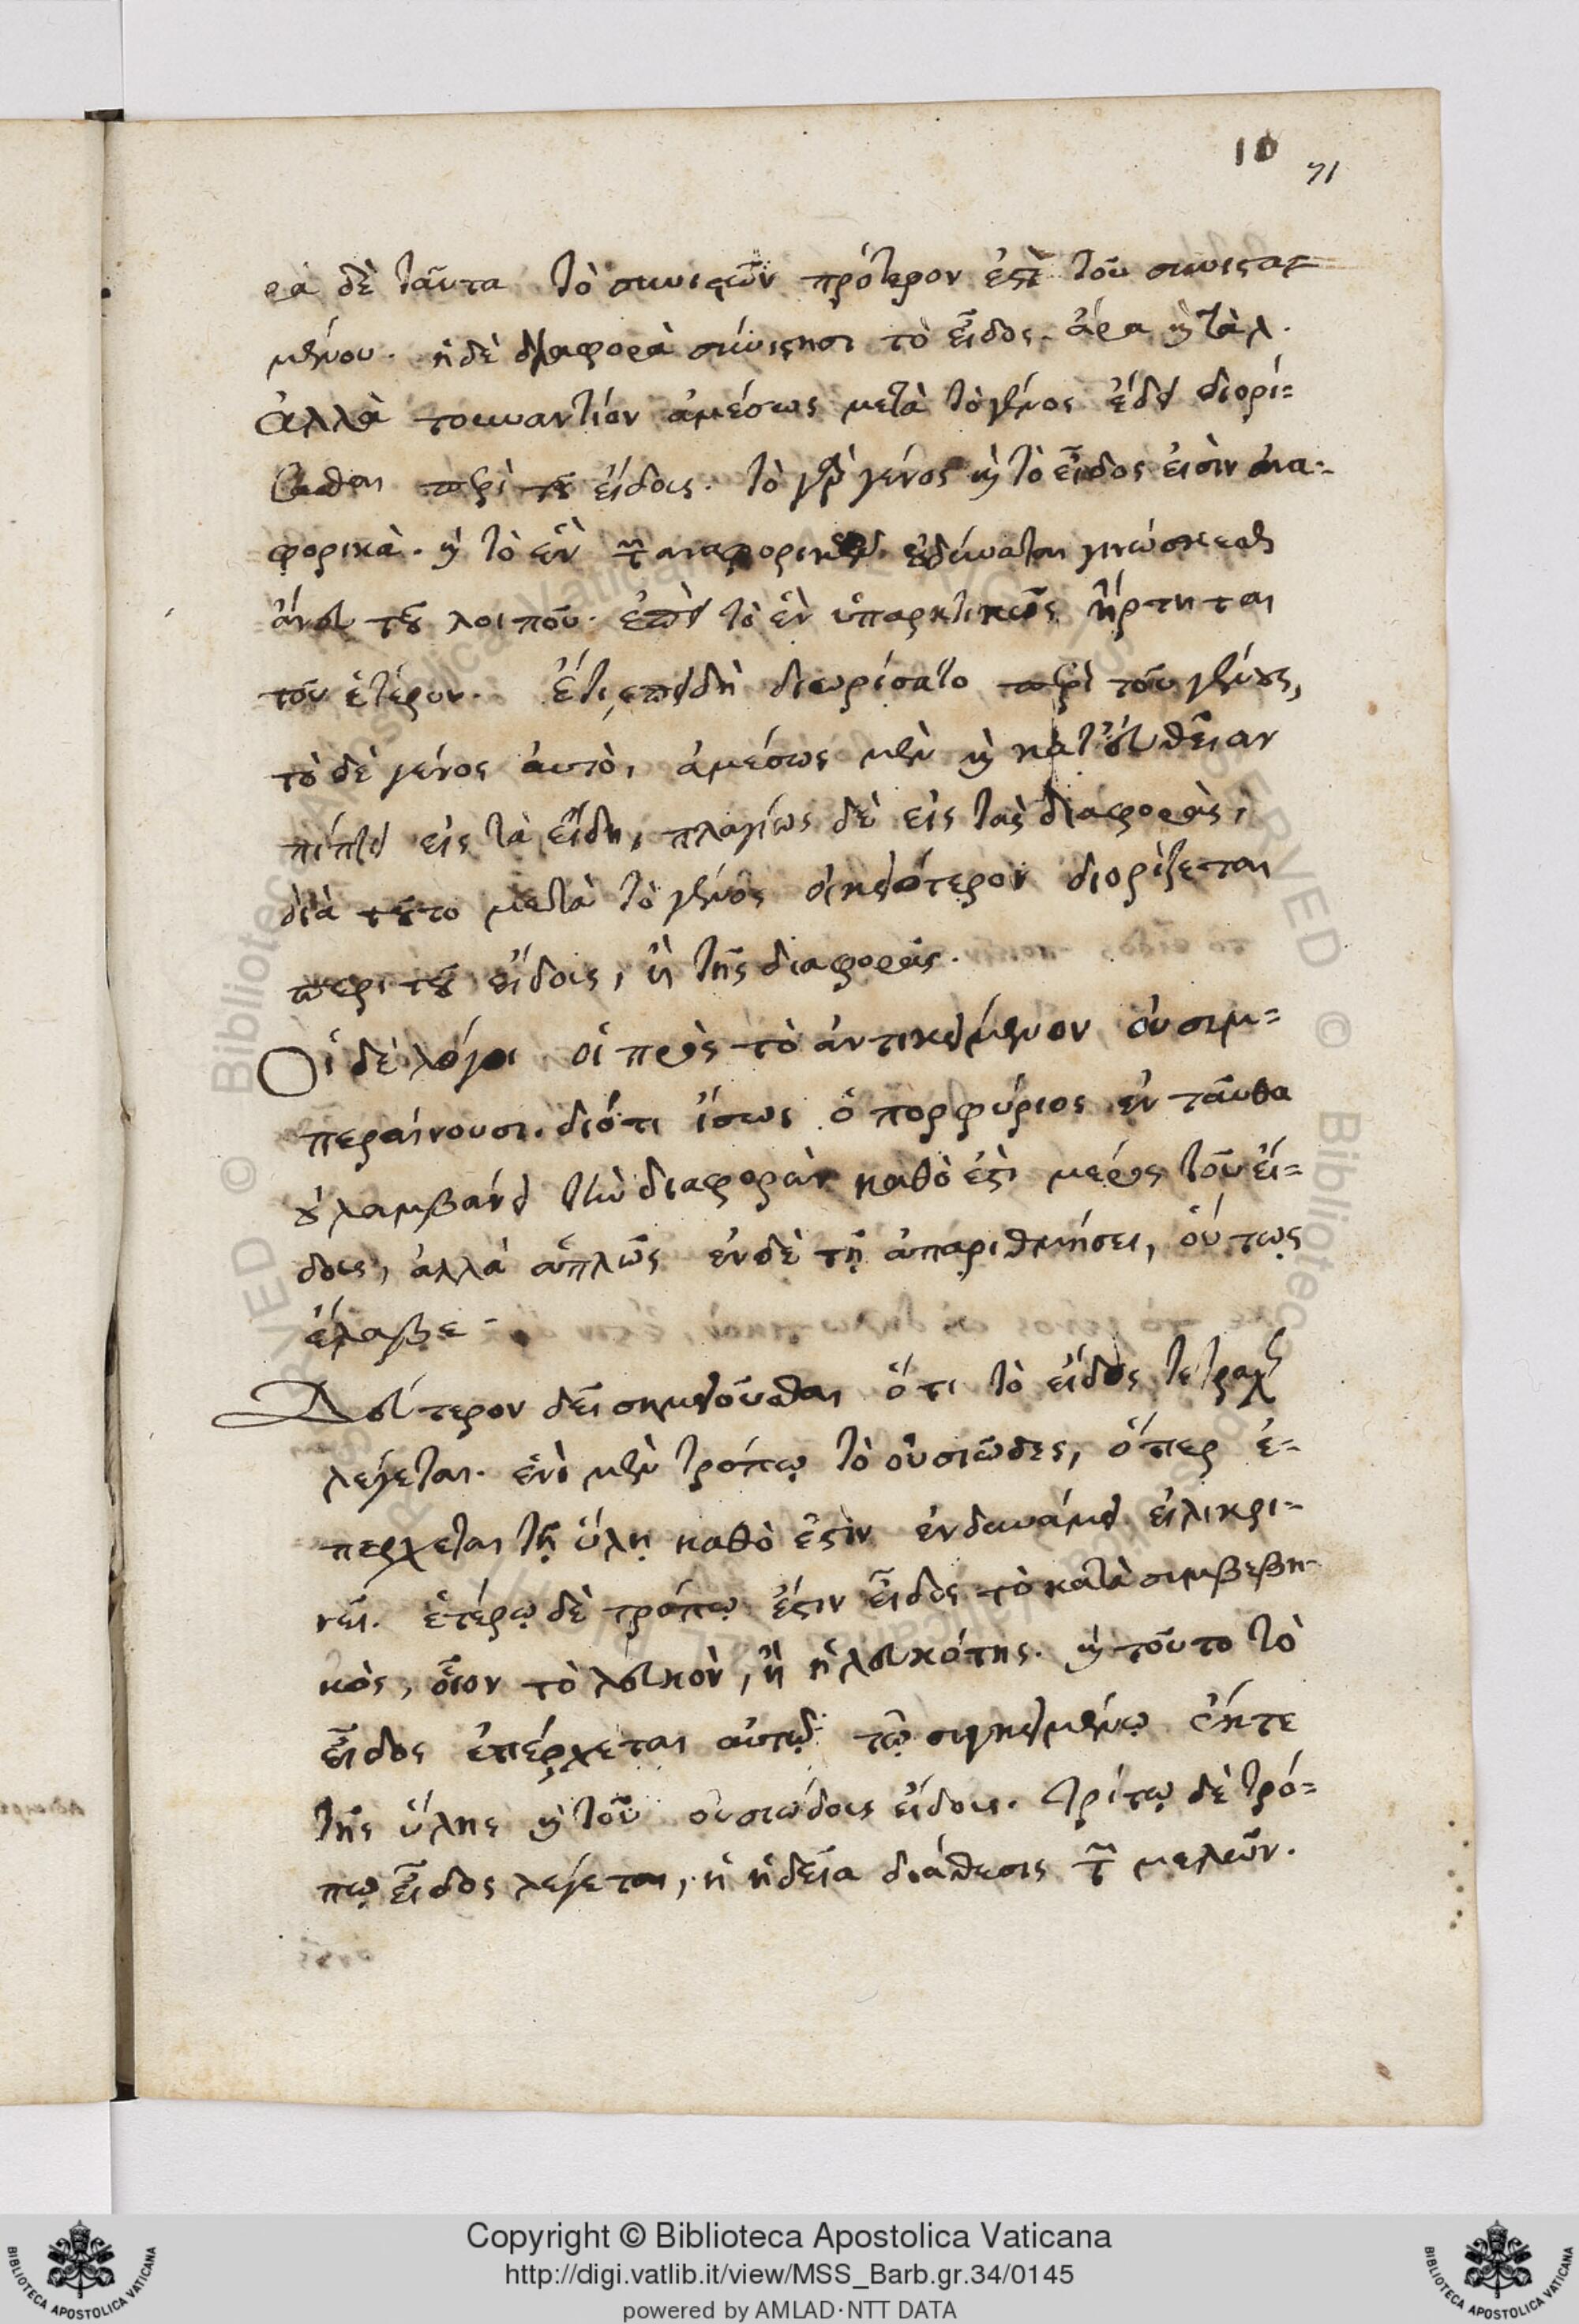 10 71
ρὰ δὲ ταῦτα τὸ συνιστῶν πρότερον ἐστὶ τοῦ συνιστα=
μένου. ἡ δὲ διαφορὰ συνίστησι τὸ εἶδος. ἄρα καὶ τὰ λ.
Ἀλλὰ τουναντίον ἀμέσως μετὰ τὸ γένος ἔδει διορί=
ζεσθαι περὶ τοῦ εἴδους. τὸ γὰρ γένος καὶ τὸ εἶδος εἰσὶν ἀνα=
φορικὰ. καὶ τὸ ἓν τῶν αναφορικῶν οὐ δύναται γινώσκεσθαι
ἄνευ τοῦ λοιποῦ. ἐπεὶ τὸ ἓν ὑπαρκτικῶς ἤρτηται
τοῦ ἑτέρου. Ἔτι, ἐπειδὴ διωρίσατο περὶ τοῦ γένους,
τὸ δὲ γένος αὐτὸ, ἀμέσως μὲν καὶ κατ' εὐθεῖαν
πίπτει εἰς τὰ εἴδη, πλαγίως δὲ εἰς τὰς διαφορὰς,
διὰ τοῦτο μετὰ τὸ γένος οἰκειότερον διορίζεται
περι τοῦ εἴδους, ἢ τῆς διαφορᾶς.
Οἱ δὲ λόγοι οἱ πρὸς τὸ ἀντικείμενον οὐ συμ=
περαίνουσι. διότι ἴσως ὁ πορφύριος ἐν ταῦθα
οὐ λαμβάνει τὴν διαφορὰν καθὸ ἐστὶ μέρος τοῦ εἴ=
δους, ἀλλὰ ἁπλῶς ἐν δὲ τῇ ἀπαριθμήσει, οὕτως
ἔλαβε.
Δεύτερον δεῖ σημειοῦσθαι ὅτι τὸ εἶδος τετραχῶς
λέγεται. ἑνὶ μὲν τρόπῳ τὸ οὐσιῶδες, ὅπερ ἐ=
περχεται τῇ ὕλῃ καθὸ ἐστὶν ἐν δυνάμει εἰλικρι=
νεῖ. ἑτέρῳ δὲ τρόπῳ ἐστιν εἶδος τὸ κατὰ συμβεβη=
κὸς, οἷον τὸ λευκὸν, ἢ ἡ λευκότης. καὶ τοῦτο τὸ
εἶδος ἐπέρχεται αὐτῷ τῷ συγκειμένῳ ἔκ τε
τῆς ὕλης καὶ τοῦ οὐσιώδους εἴδους. τρίτῳ δὲ τρό=
πῳ εἶδος λέγεται, ἡ ἡδεῖα διάθεσις τῶν μελῶν.
Copyright © Biblioteca Apostolica Vaticana
http://digi.vatlib.it/view/MSS_Barb.gr.34/0145
powered by AMLAD·NTT DATA